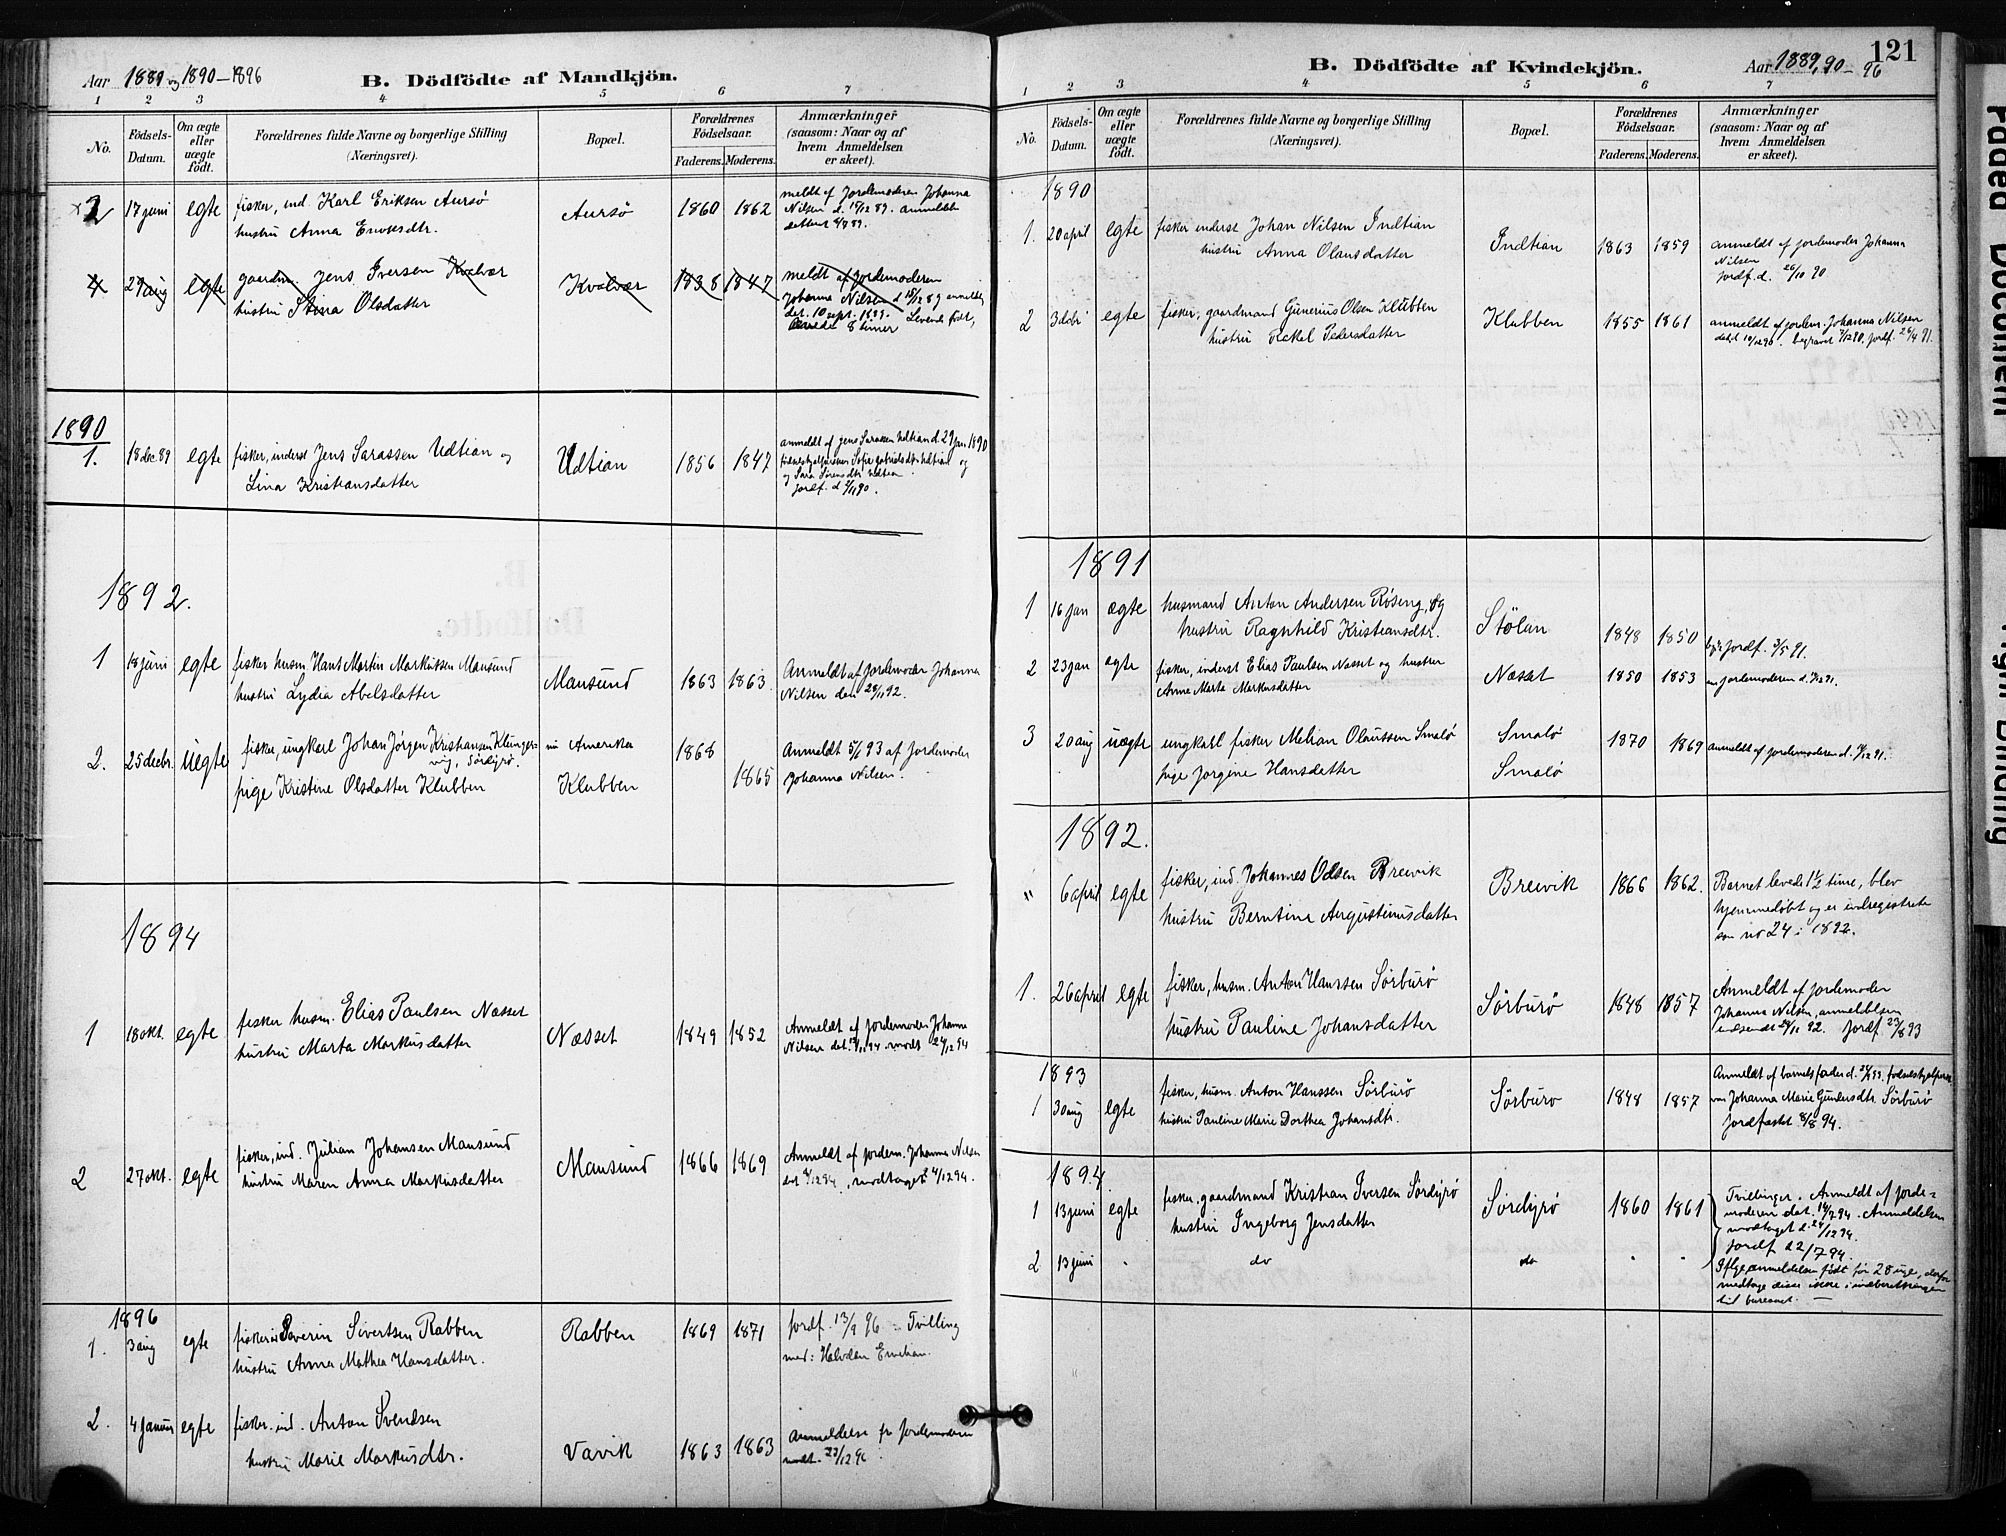 Aar 1889 og 1890–1896
B. Dödfödte af Mandkjön.
1 2 3 4 5 6 7
No.
Födsels-
Datum.
Om ægte
eller
uægte
födt.
Forældrenes fulde Navne og borgerlige Stilling
(Næringsvei).
Bopæl.
Forældrenes
Födselsaar.
Faderens. Moderens.
Anmærkninger
(saasom: Naar og af
hvem Anmeldelsen
er skeet).
2 17 juni egte fisker, ind. Karl Eriksen Aursö Aursö 1860 1862 meldt af Jordemoderen Johanna
hustru Anna Enoksdtr. Nilsen d. 18/12 89. anmeldelse
4 29 aug egte gaardm. Jens Iversen Kvalvær Kvalvær 1838 1847 meldt af Jordemoderen
hustru Stina Olsdatter Johanna Nilsen d. 18/12 89 anmeldt
det. 10 sept. 1889. Levende født,
levede 8 timer
1890
1. 18 dec. 89 egte fisker, inderst Jens Sarassen Udtian og Udtian 1856 1847 anmeldt af Jens Sarassen Udtian d. 29 jan 1890
Lina Kristiansdatter
Jordf. d
1892.
1 18 juni egte fisker husm. Hans Martin Markussen Mausund Mausund 1863 1863 Anmeldt af Jordemoder Johanna
hustru Lydia Abelsdatter Nilsen den 28/11 92.
2. 25 decbr. uegte fisker, ungkarl Johan Jörgen Kristiansen Klunger- i Amerika 1868 Anmeldt 5/1 93 af Jordemoder
vig, Sördyrö.
pige Kristine Olsdatter Klubben Klubben 1865 Johanna Nilsen.
1894
1 18 okt. egte fisker husm. Elias Paulsen Næsset Næsset 1849 1852 Anmeldt af Jordemoder Johanna
hustru Marta Markusdatter Nilsen
2 27 okt. egte fisker, ind. Julian Johansen Mausund Mausund 1866 1869 Anmeldt af jordem. Johanna Nilsen
hustru Maren Anna Markusdatter modtaget 4/12 94.
1896
1. 3 aug egte fisker Severin Sivertsen Rabben Rabben 1869 1871 Jordf. 13/9 96 – Tvilling
hustru Anna Mathea Hansdatter. med: Halvdan
2. 4 januar egte fisker. ind. Anton Svendsen Vavik 1863 1863 Anmeldelse fr Jordemoderen
hustru Marie Markusdtr. modt. 23/12 96
B. Dödfödte af Kvindekjön.
Aar 1889, 90–96
121
1 2 3 4 5 6 7
No.
Födsels-
Datum.
Om ægte
eller
uægte
födt.
Forældrenes fulde Navne og borgerlige Stilling
(Næringsvei).
Bopæl.
Forældrenes
Födselsaar.
Faderens. Moderens.
Anmærkninger
(saasom: Naar og af
hvem Anmeldelsen
er skeet).
1890
1. 20 april egte fisker inderst Johan Nilsen Indtian Indtian 1863 1859 anmeldt af jordemoder Johanna
hustru Anna Olausdatter Nilsen
Jordf. d. 26/10 90
2 3 debr egte fisker, gaardmand Gunerius Olsen Klubben Klubben 1855 1861 anmeldt af jordem. Johanna Nilsen
hustru Rakel Pedersdatter
1891
1 16 jan ægte husmand Anton Andersen Røseng, og Stölan 1848 1850 Jordf. 3/5 91.
hustru Ragnhild Kristiansdtr.
2 23 jan egte fisker, inderst Elias Paulsen Næsset og hustru Næsset 1850 1853 jordemoderen
Anne Marta Markusdatter
3 20 aug uægte ungkarl fisker Melian Olaussen Smalö Smalö 1870 1869 anmeldt af jordemoderen
pige Jorgine Hansdatter Smalö
1892.
" 6 april egte fisker, ind. Johannes Olsen Breivik Breivik 1866 1862. Barnet levede 1½ time, blev
hustru Berntine Augustinusdatter hjemmedöbt og er indregistreret
som no 24 i 1892.
1. 26 april egte fisker, husm. Anton Hanssen Sörburö Sörburö 1848 1857 Anmeldt af jordemoder
hustru Pauline Johansdatter Johanna Nilsen, anmeldelsen
indsendt 28/11 92. Jordf. 27/8 93
1893
1 30 aug egte fisker, husm. Anton Hanssen Sörburö Sörburö 1848 1857 Anmeldt af barnets fader
hustru Pauline Marie Dorthea Johansdtr. var Johanna Marie Gundersdtr. Sörburö
Jordfæstet 8/8 94.
1894
1 13 juni egte fisker, gaardmand Kristian Iversen Sördyrö Sördyrö 1860 1861 Tvillinger. Anmeldt af jorde-
hustru Ingeborg Jensdatter moderen det. 14/7 94. Anmeldelsen
modtaget d. 24/12 94.
Jordf. 22/7 94.
2 13 juni " do do " " Iflge anmeldelsen født før 28 uge, derfor
medtages disse ikke i indberetningen
til bureauet. —